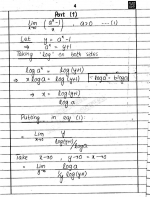 4
Part (1)
lim x→0 (a^x - 1 / x), a>0 --- (1)
Let y = a^x - 1
a^x = y+1
Taking 'log' on both sides
log a^x = log(y+1)
⇒ x log a = log(y+1)
⇒ x = log(y+1) / log a
Putting in eq (1):
= lim y→0 y / (log(y+1) / log a)
Take x→0, y→0 = x→0
= lim y→0 log a / (1/y log(y+1))